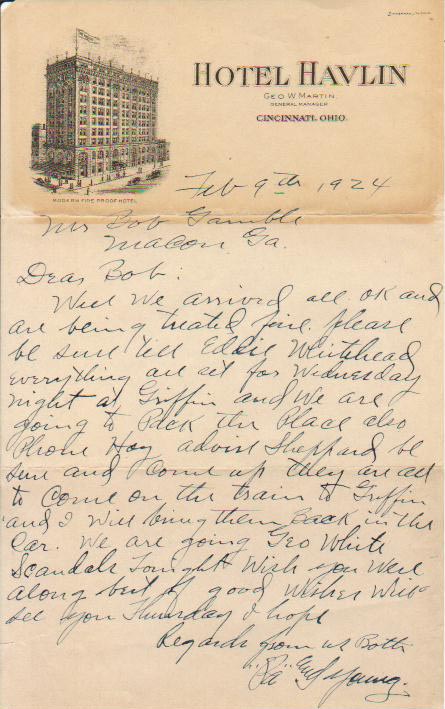 HOTEL HAVLIN
GEO W. MARTIN.
GENERAL MANAGER
CINCINNATI, OHIO.
MODERN FIRE PROOF HOTEL
Feb 9th 1924
Mr Bob Gamble
Macon Ga.
Dear Bob:
Well We arrived all OK and
are being treated fine. please
be sure tell Eddie Whitehead
everything all set for Wednesday
night at Griffin and We are
going to Pack the Place also
Phone Hoy advise Sheppard be
sure and Come up they are all
to Come on the train to Griffin
and I Will bring them Back in the
Car. We are going Geo White
Scandals Tonight Wish you Were
along best of good Wishes Will
see you Thursday I hope
Regards from us Both
Young.